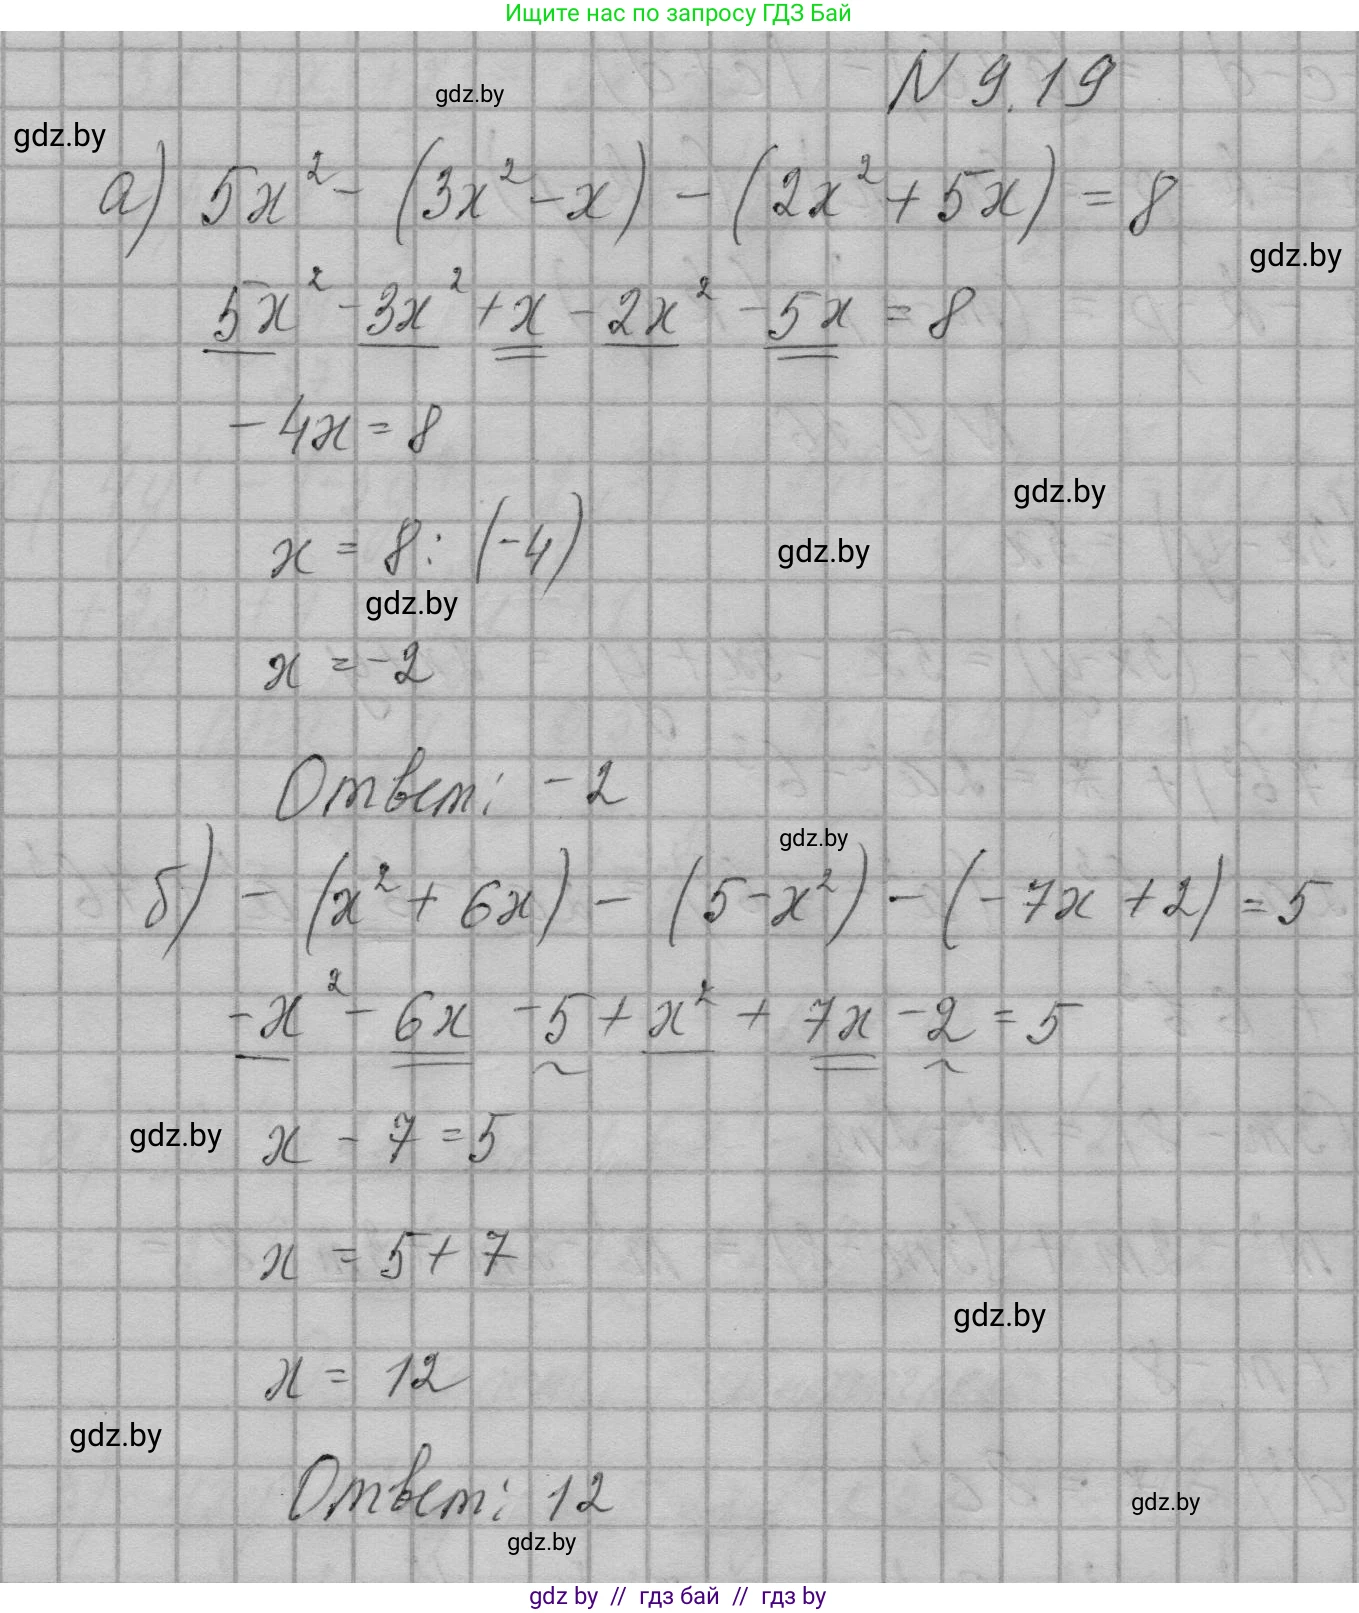 Ищите нас по запросу ГДЗ Бай
N 9.19
gdz.by
gdz.by
а) 5x² - (3x² - x) - (2x² + 5x) = 8
gdz.by
5x² - 3x² + x - 2x² - 5x = 8
-4x = 8
gdz.by
x = 8 : (-4)
gdz.by
gdz.by
x = -2
Ответ: -2
gdz.by
б) - (x² + 6x) - (5 - x²) - (-7x + 2) = 5
-x² - 6x - 5 + x² + 7x - 2 = 5
gdz.by
x - 7 = 5
x = 5 + 7
gdz.by
x = 12
gdz.by
Ответ: 12
gdz.by
gdz.by
gdz by // гдз бай // гдз by